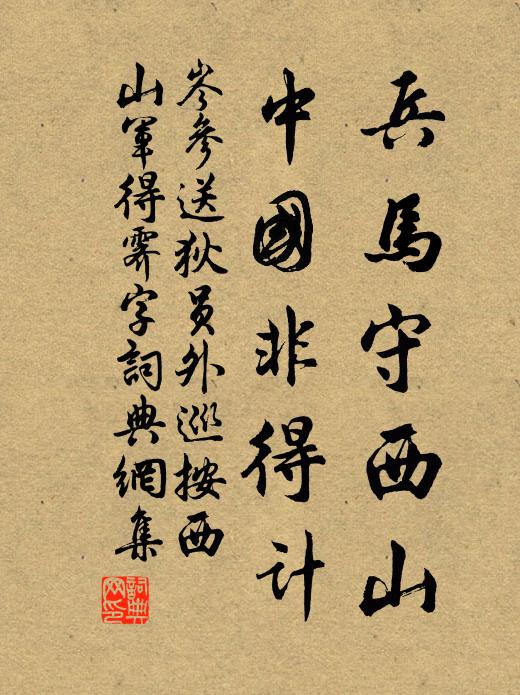 兵馬守西山
中國非得計
岑參送狄員外巡按西
山軍得霽字詞典網集
詞典
网印